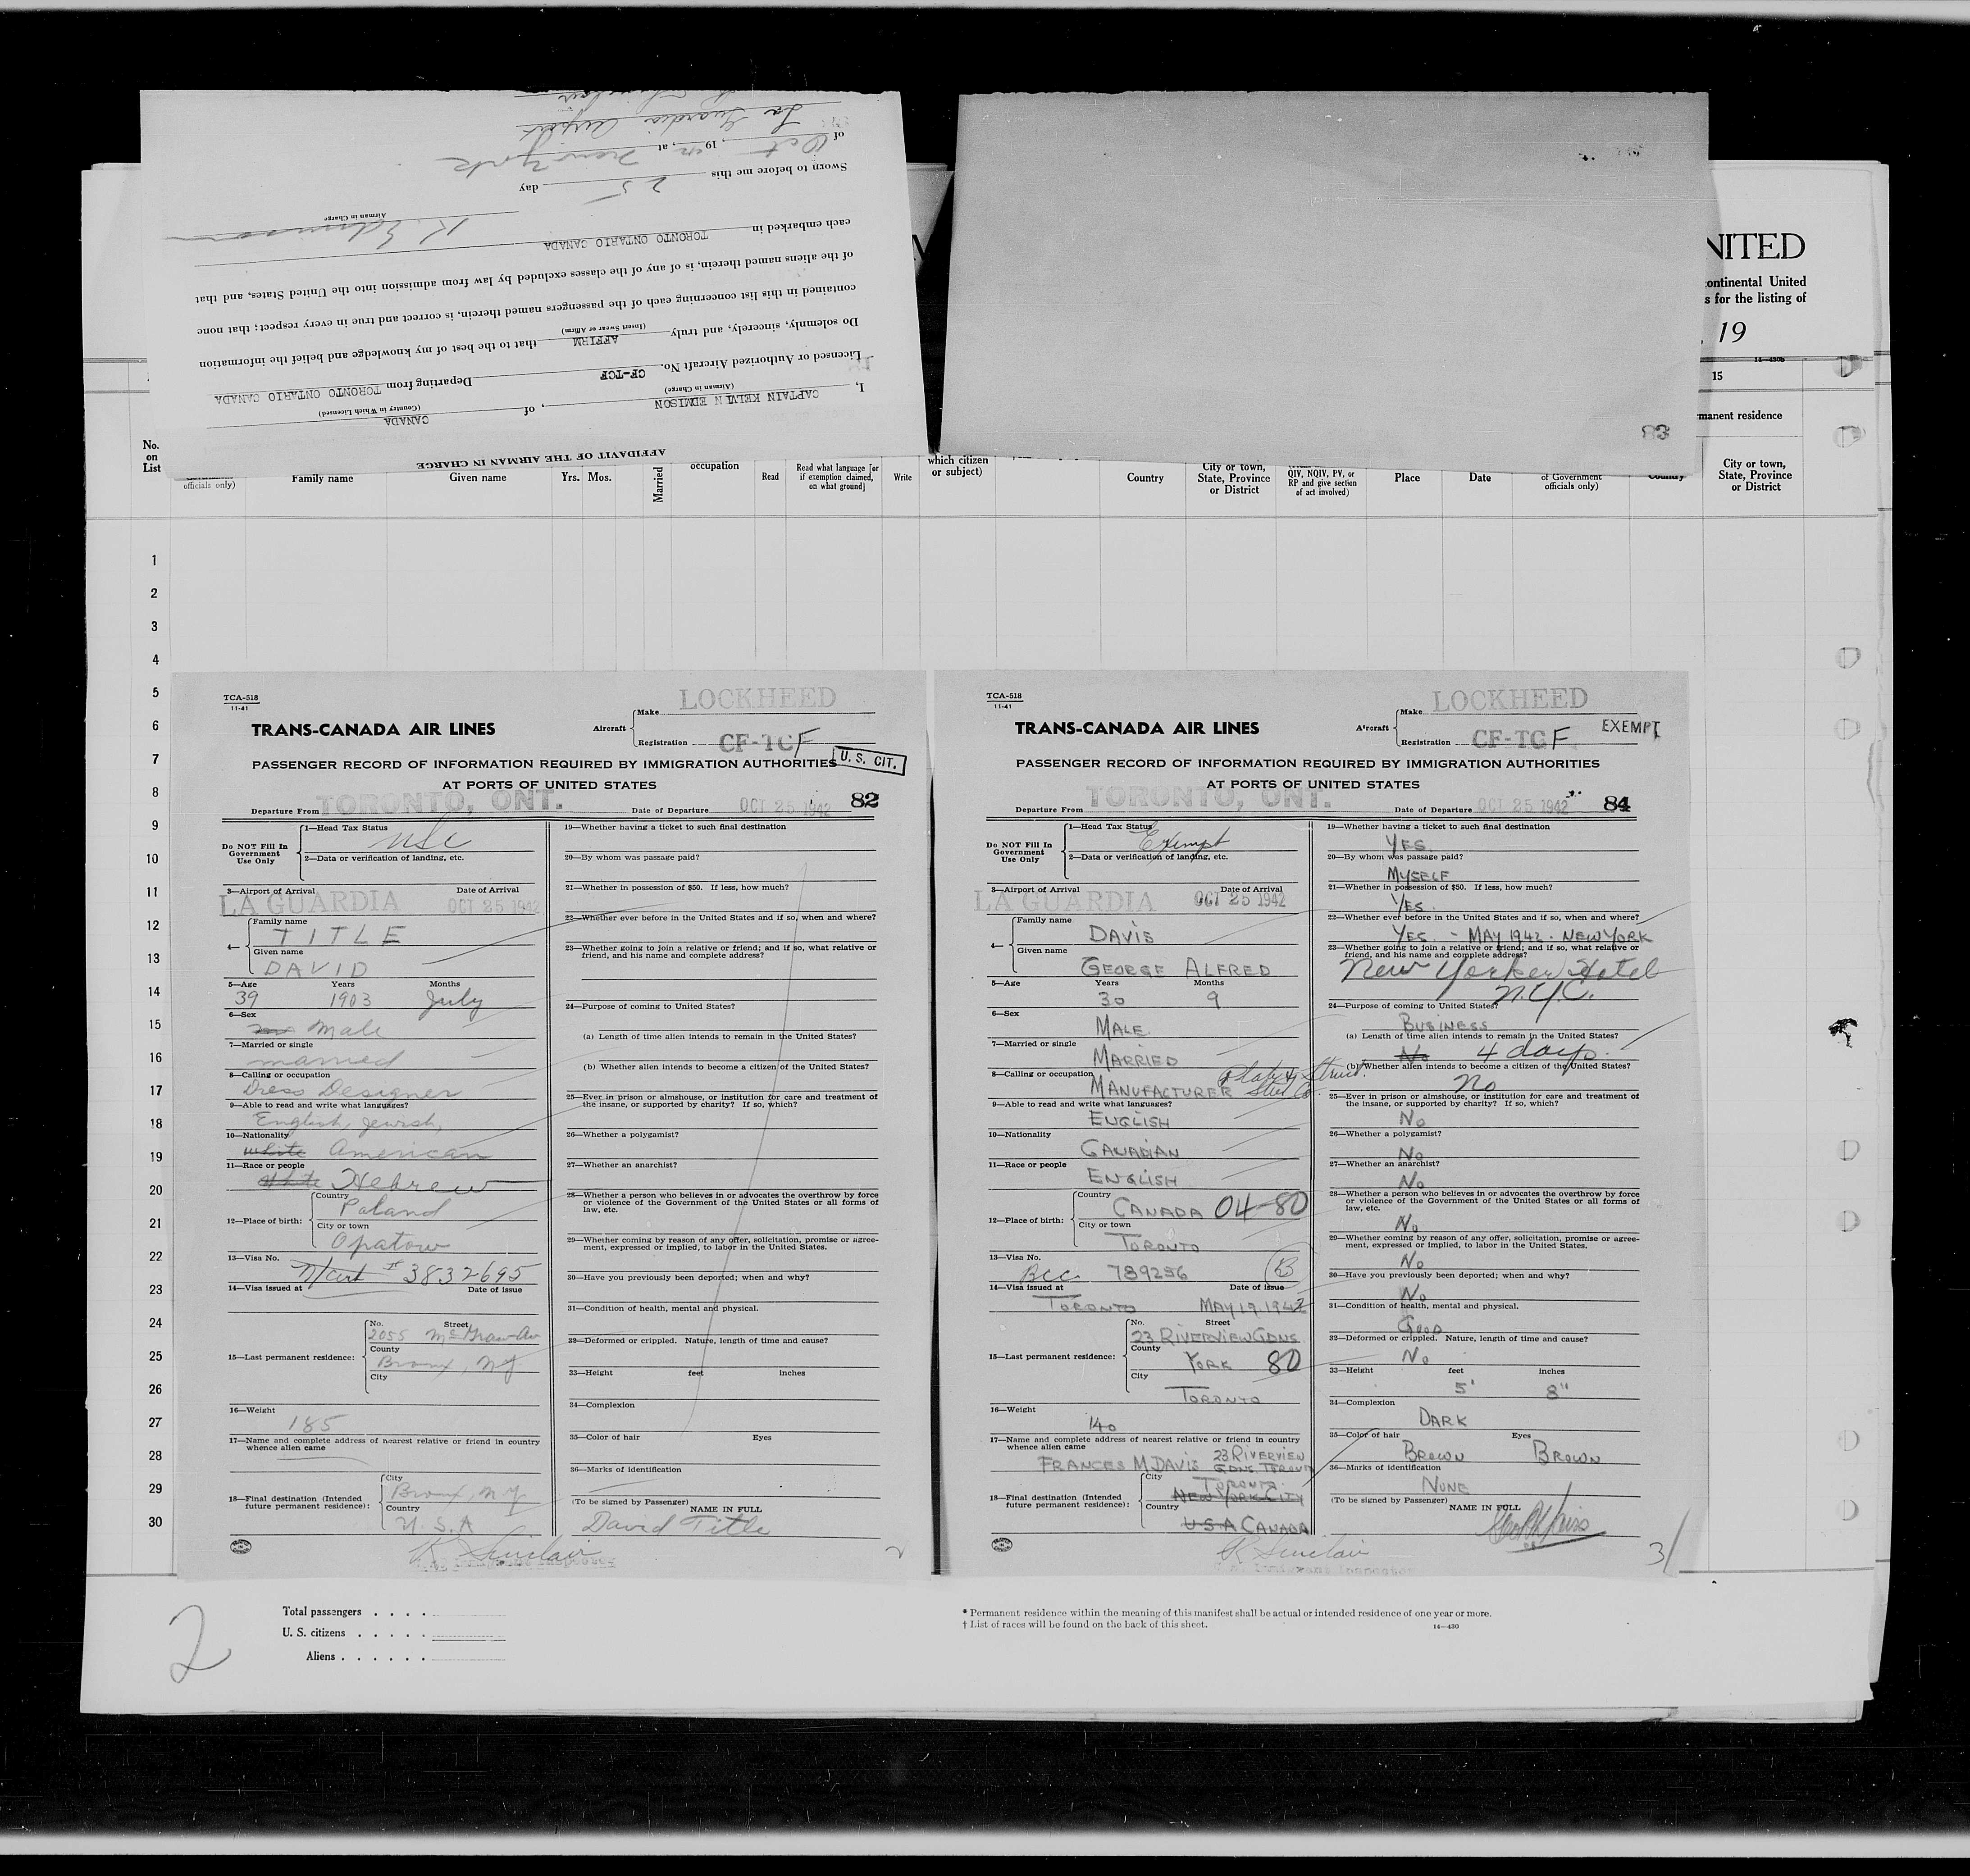 AFFIDAVIT OF THE AIRMAN IN CHARGE
I, CAPTAIN KELVIN EDMISON, of CANADA
(Airman in Charge) (Country in Which Licensed)
Licensed or Authorized Aircraft No. CF-TCF Departing from TORONTO ONTARIO CANADA
Do solemnly, sincerely, and truly AFFIRM that to the best of my knowledge and belief the information
(Insert Swear or Affirm)
contained in this list concerning each of the passengers named therein, is correct and true in every respect; that none
of the aliens named therein, is of any of the classes excluded by law from admission into the United States, and that
each embarked in TORONTO ONTARIO CANADA
K. Edmison
Airman in Charge
Sworn to before me this 25 day
of Oct, 19 42, at New York
La Guardia Airport
83
NITED
continental United
s for the listing of
, 19
14—430b
15
manent residence
No.
on
List
officials only)
Family name
Given name
Yrs. Mos.
Married
occupation
Read
Read what language [or
if exemption claimed,
on what ground]
Write
which citizen
or subject)
Country
City or town,
State, Province
or District
QIV, NQIV, PV, or
RP and give section
of act involved)
Place
Date
of Government
officials only)
Country
City or town,
State, Province
or District
1
2
3
4
5
6
7
8
9
10
11
12
13
14
15
16
17
18
19
20
21
22
23
24
25
26
27
28
29
30
TCA-518
11-41
LOCKHEED
TRANS-CANADA AIR LINES
Aircraft
Make
Registration CF-TCF
U. S. CIT.
PASSENGER RECORD OF INFORMATION REQUIRED BY IMMIGRATION AUTHORITIES
AT PORTS OF UNITED STATES
82
Departure From TORONTO, ONT. Date of Departure OCT 25 1942
Do NOT Fill In
Government
Use Only
1—Head Tax Status
USC
2—Data or verification of landing, etc.
3—Airport of Arrival Date of Arrival
LA GUARDIA OCT 25 1942
4—
Family name
TITLE
Given name
DAVID
5—Age Years Months
39 1903 July
6—Sex
Male
7—Married or single
married
8—Calling or occupation
Dress Designer
9—Able to read and write what languages?
English, Jewish,
10—Nationality
white American
11—Race or people
white Hebrew
12—Place of birth:
Country
Poland
City or town
Opatow
13—Visa No.
N/Cert # 3832695
14—Visa issued at Date of issue
15—Last permanent residence:
No. Street
2055 McGraw Av
County
Bronx, NY
City
16—Weight
185
17—Name and complete address of nearest relative or friend in country
whence alien came
18—Final destination (Intended
future permanent residence):
City
Bronx, N Y
Country
U.S.A
19—Whether having a ticket to such final destination
20—By whom was passage paid?
21—Whether in possession of $50. If less, how much?
22—Whether ever before in the United States and if so, when and where?
23—Whether going to join a relative or friend; and if so, what relative or
friend, and his name and complete address?
24—Purpose of coming to United States?
(a) Length of time alien intends to remain in the United States?
(b) Whether alien intends to become a citizen of the United States?
25—Ever in prison or almshouse, or institution for care and treatment of
the insane, or supported by charity? If so, which?
26—Whether a polygamist?
27—Whether an anarchist?
28—Whether a person who believes in or advocates the overthrow by force
or violence of the Government of the United States or all forms of
law, etc.
29—Whether coming by reason of any offer, solicitation, promise or agree-
ment, expressed or implied, to labor in the United States.
30—Have you previously been deported; when and why?
31—Condition of health, mental and physical.
32—Deformed or crippled. Nature, length of time and cause?
33—Height feet inches
34—Complexion
35—Color of hair Eyes
36—Marks of identification
(To be signed by Passenger)
NAME IN FULL
David Title
K Sinclair
TCA-518
11-41
LOCKHEED
TRANS-CANADA AIR LINES
Aircraft
Make
Registration CF-TCF
EXEMPT
PASSENGER RECORD OF INFORMATION REQUIRED BY IMMIGRATION AUTHORITIES
AT PORTS OF UNITED STATES
84
Departure From TORONTO, ONT. Date of Departure OCT 25 1942
Do NOT Fill In
Government
Use Only
1—Head Tax Status
Exempt
2—Data or verification of landing, etc.
3—Airport of Arrival Date of Arrival
LA GUARDIA OCT 25 1942
4—
Family name
DAVIS
Given name
GEORGE ALFRED
5—Age Years Months
30 9
6—Sex
MALE
7—Married or single
MARRIED
8—Calling or occupation
MANUFACTURER Plate & Struct. Steel Co.
9—Able to read and write what languages?
ENGLISH
10—Nationality
CANADIAN
11—Race or people
ENGLISH
12—Place of birth:
Country
CANADA 04-80
City or town
TORONTO
13—Visa No.
BCC. 789256 B
14—Visa issued at Date of issue
TORONTO MAY 19. 1942
15—Last permanent residence:
No. Street
23 RIVERVIEW GDNS
County
YORK 80
City
TORONTO
16—Weight
140
17—Name and complete address of nearest relative or friend in country
whence alien came
FRANCES M DAVIS 23 RIVERVIEW
GDNS. TORONTO
18—Final destination (Intended
future permanent residence):
City
TORONTO
NEW YORK CITY
Country
U S A CANADA
19—Whether having a ticket to such final destination
YES
20—By whom was passage paid?
MYSELF
21—Whether in possession of $50. If less, how much?
YES.
22—Whether ever before in the United States and if so, when and where?
YES. - MAY 1942 - NEW YORK
23—Whether going to join a relative or friend; and if so, what relative or
friend, and his name and complete address?
New Yorker Hotel
N.Y.C.
24—Purpose of coming to United States?
BUSINESS
(a) Length of time alien intends to remain in the United States?
No 4 days.
(b) Whether alien intends to become a citizen of the United States?
No
25—Ever in prison or almshouse, or institution for care and treatment of
the insane, or supported by charity? If so, which?
No
26—Whether a polygamist?
No
27—Whether an anarchist?
No
28—Whether a person who believes in or advocates the overthrow by force
or violence of the Government of the United States or all forms of
law, etc.
No
29—Whether coming by reason of any offer, solicitation, promise or agree-
ment, expressed or implied, to labor in the United States.
No
30—Have you previously been deported; when and why?
No
31—Condition of health, mental and physical.
GOOD
32—Deformed or crippled. Nature, length of time and cause?
No
33—Height feet inches
5' 8"
34—Complexion
DARK
35—Color of hair Eyes
BROWN BROWN
36—Marks of identification
NONE
(To be signed by Passenger)
NAME IN FULL
K Sinclair
3
2
Total passengers . . . .
U. S. citizens . . . . .
Aliens . . . . . .
* Permanent residence within the meaning of this manifest shall be actual or intended residence of one year or more.
† List of races will be found on the back of this sheet.
14—430